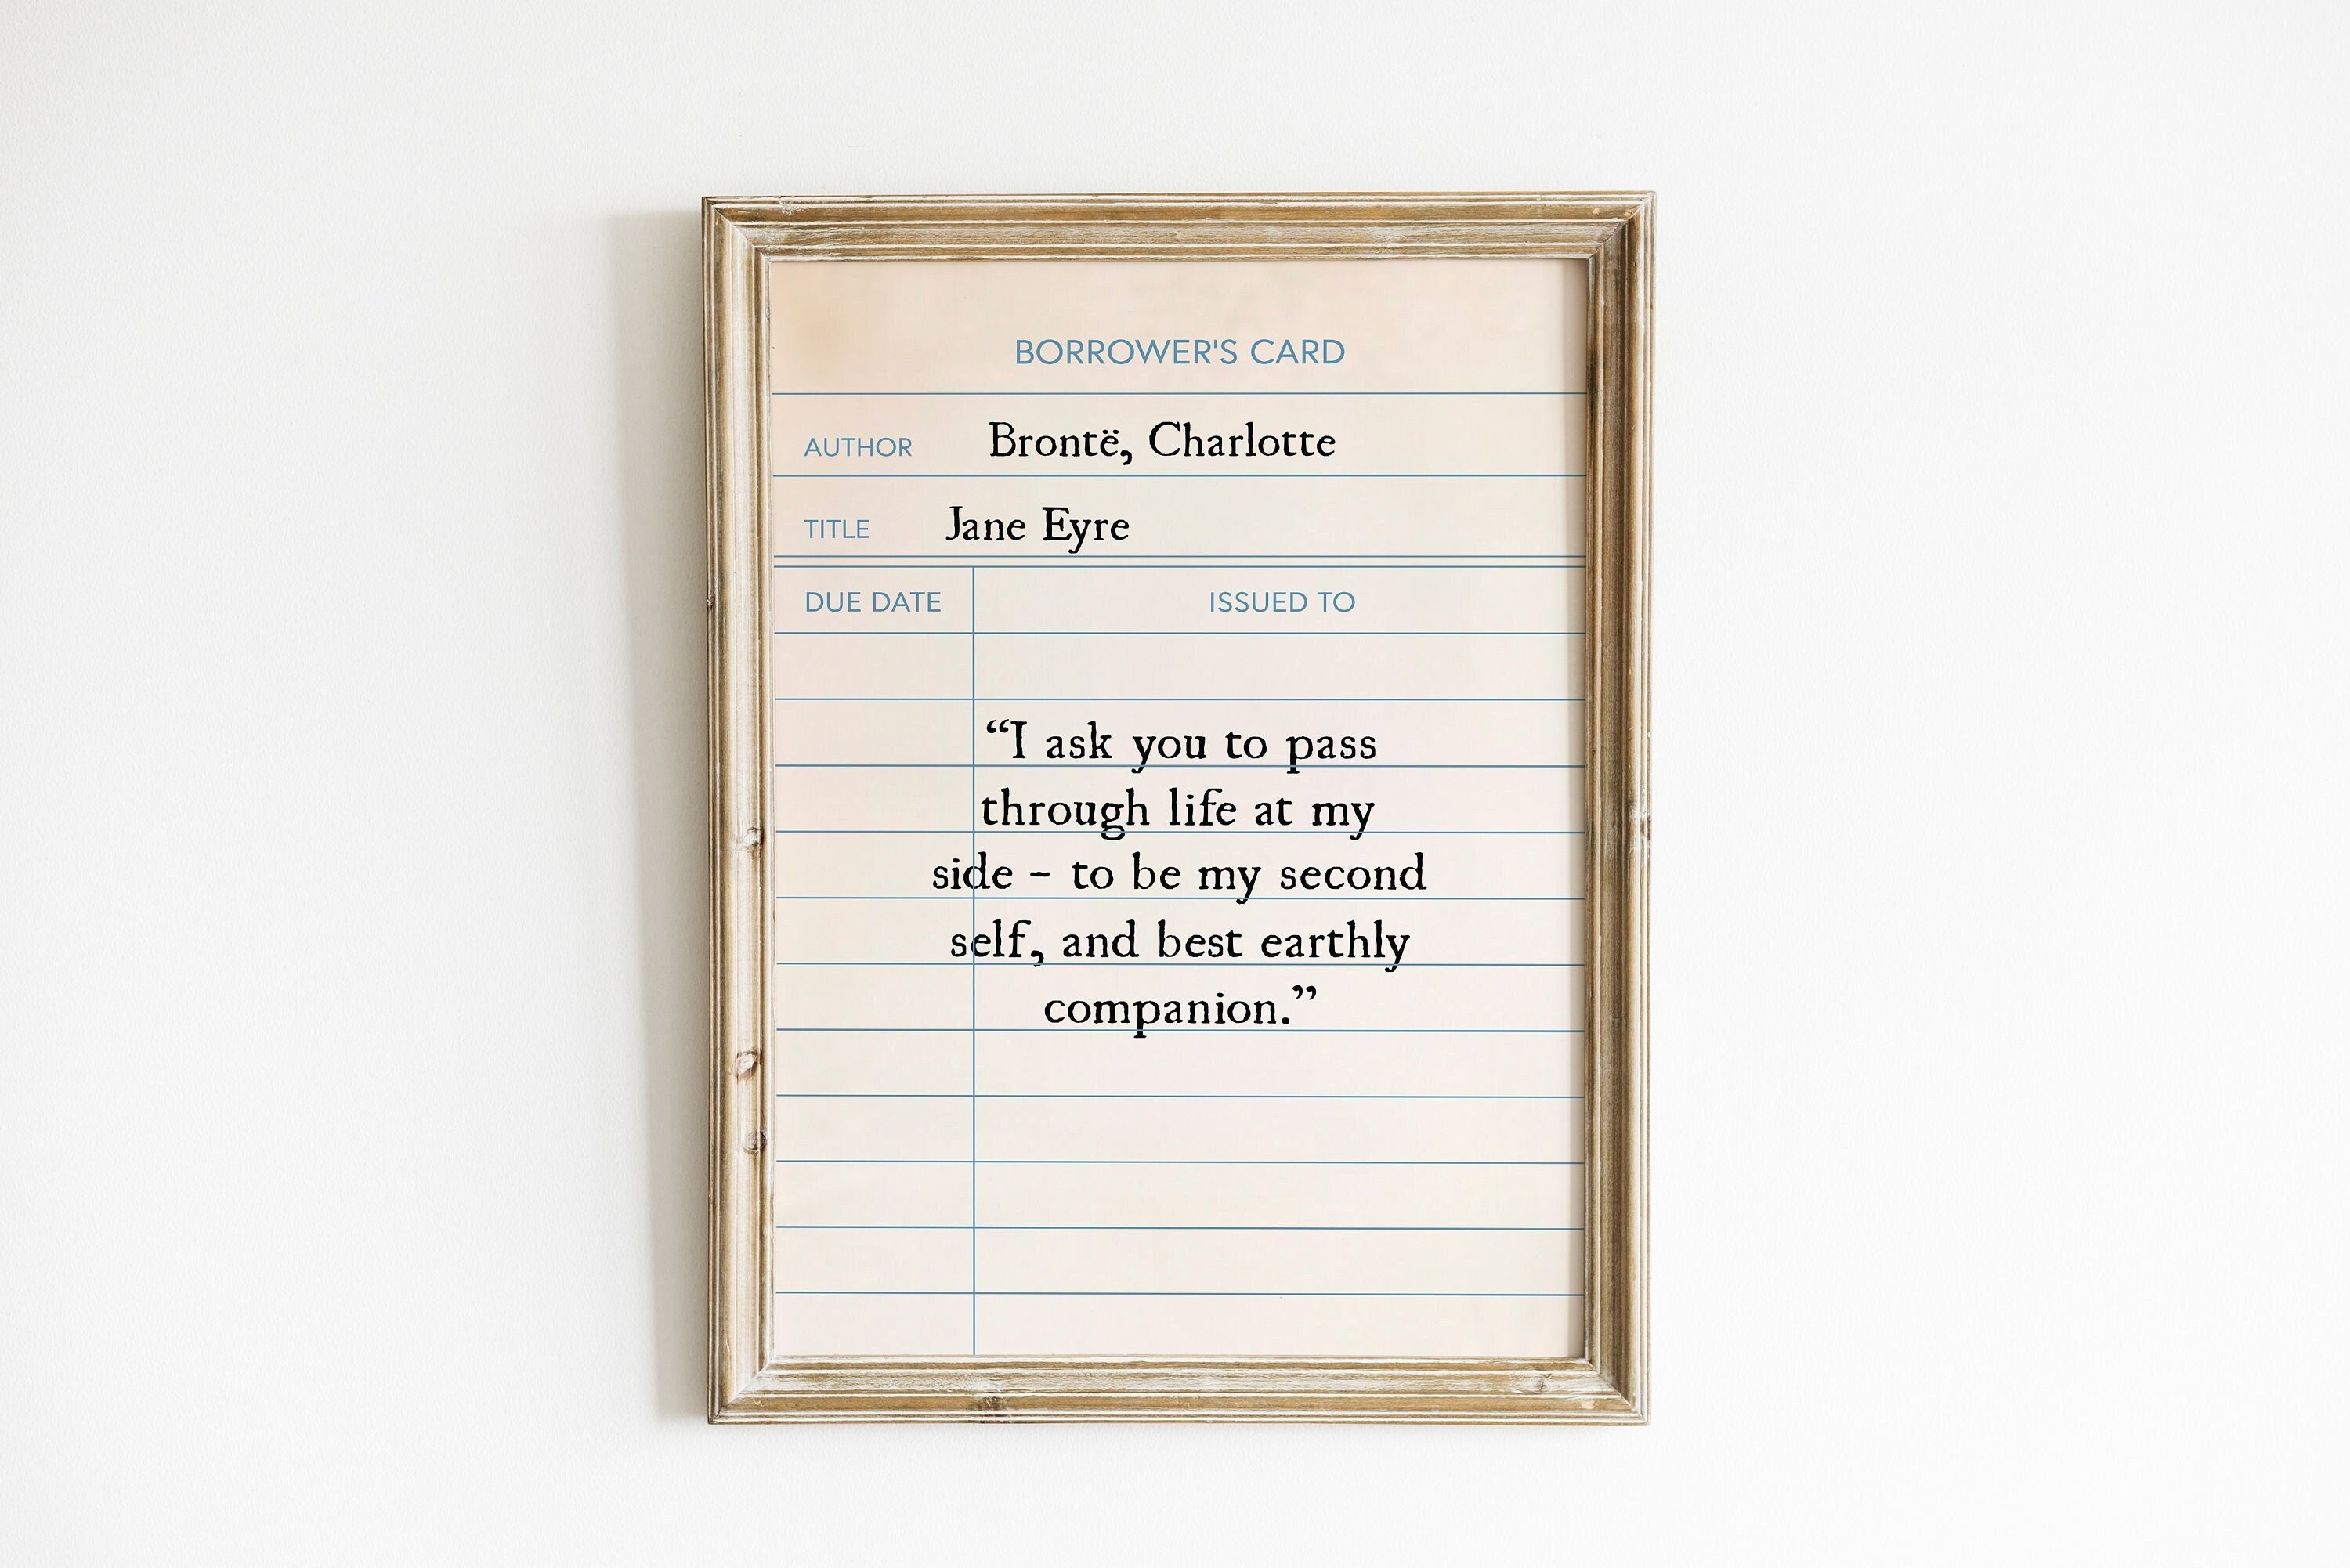 BORROWER'S CARD
AUTHOR Brontë, Charlotte
TITLE Jane Eyre
DUE DATE ISSUED TO
“I ask you to pass
through life at my
side - to be my second
self, and best earthly
companion.”